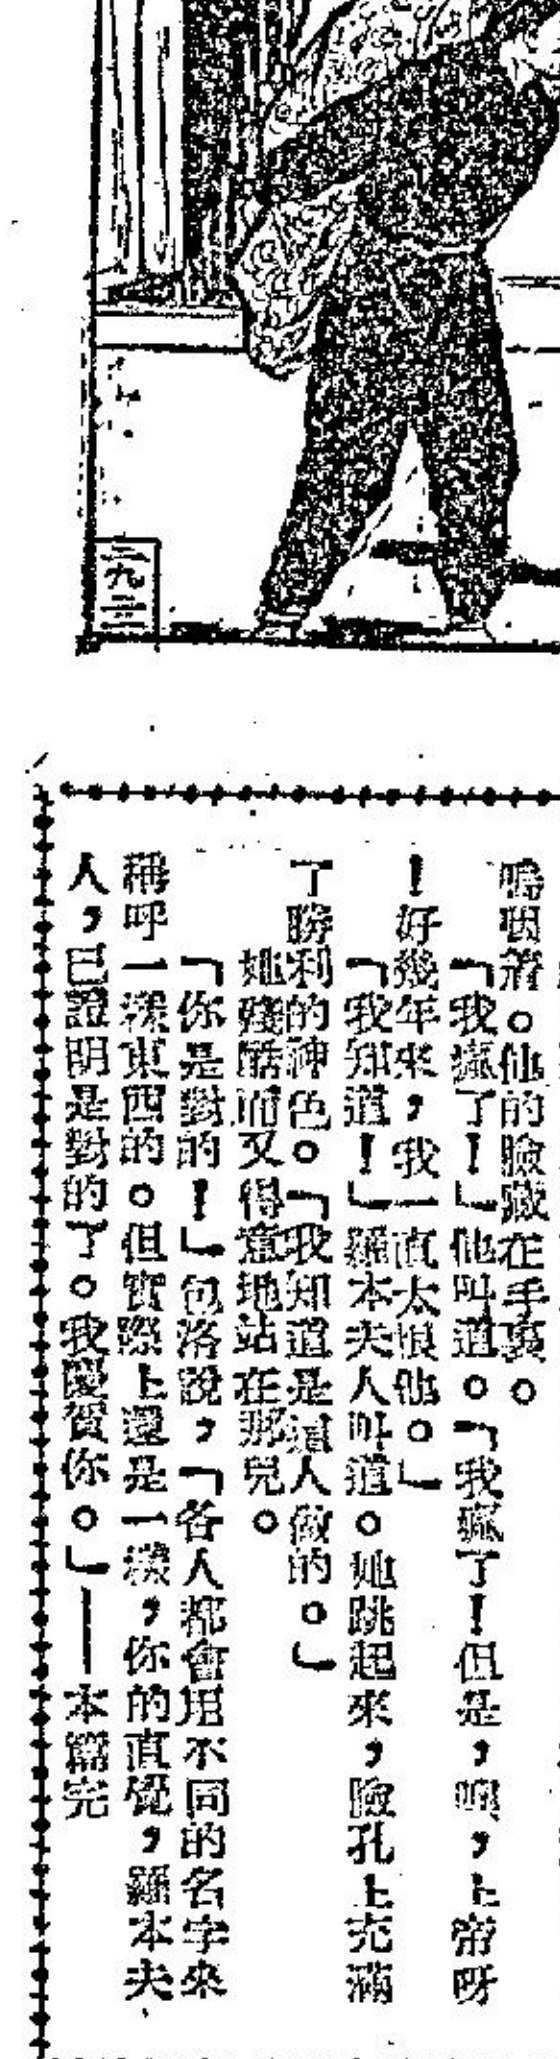 二九二
嗚咽着。他的臉藏在手裏。
「我瘋了！」他叫道。「我瘋了！但是，噢，上帝呀
！好幾年來，我一直太恨他。」
「我知道！」羅本夫人叫道。她跳起來，臉孔上充滿
了勝利的神色。「我知道是這人做的。」
她殘酷而又得意地站在那兒。
「你是對的！」包洛說，「各人都會用不同的名字來
稱呼一樣東西的。但實際上還是一樣，你的直覺，羅本夫
人，已證明是對的了。我慶賀你。」——本篇完